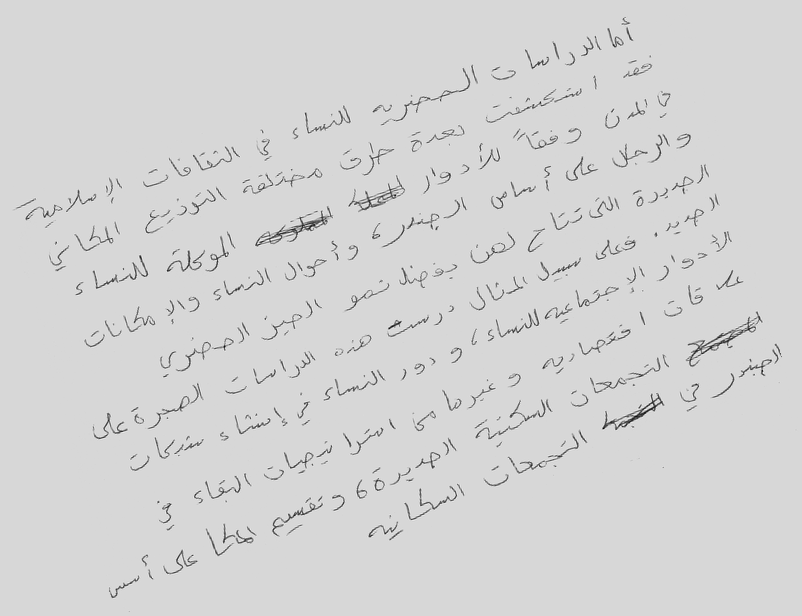 أما الدراسات الحضريه للنساء في الثقافات الإسلامية
فقد استكشفت بعدة طرق مختلفة التوزيع المكاني
في المدن وفقاً للأدوار الموكلة للنساء
والرجال على أساس الجندر، وأحوال النساء والإمكانات
الجديدة التى تتاح لهن بفضل نمو الحيز الحضري
الجديد. فعلى سبيل المثال درست هذه الدراسات الهجرة على
الأدوار الإجتماعيه للنساء، ودور النساء في إنشاء شبكات
علاقات اقتصاديه وغيرها من استراتيجيات البقاء في
التجمعات السكنية الجديدة، وتقسيم المكا على أسس
الجندر في التجمعات السكانيه